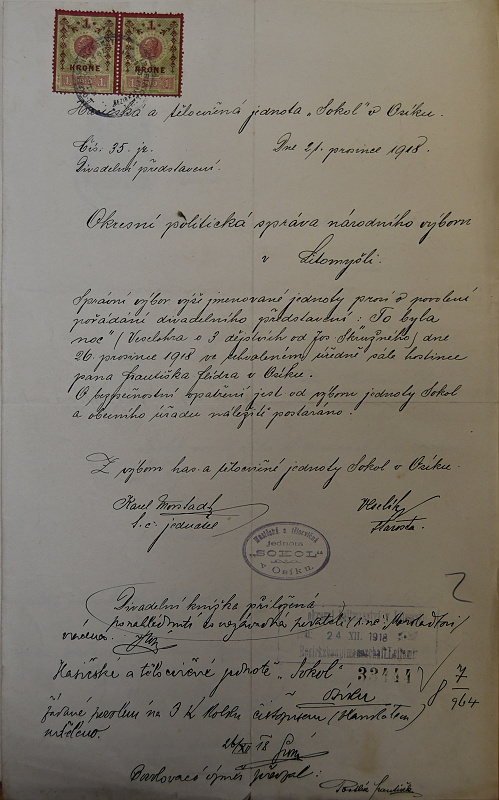 1 1
KRONE KRONE
Hasičská a tělocvičná jednota „Sokol" v Osíku.
Čís: 35. je. Dne 21. prosince 1918.
Divadelní představení.
Okresní politická správa národního výboru
v Litomyšli.
Správní výbor výše jmenované jednoty prosí o povolení
pořádání divadelního představení: „To byla
noc" (Veselohra o 3 dějstvích od Jos Skružného) dne
26. prosince 1918 ve schváleném úředně sále hostince
pana Františka Flídra v Osíku.
O bezpečnostní opatření jest od výboru jednoty Sokol
a obecního úřadu náležitě postaráno.
Z výboru has. a tělocvičné jednoty Sokol v Osíku.
Karel t. č. jednatel
starosta.
Hasičská a tělocvičná
jednota
„SOKOL"
v Osíku.
Divadelní knížka přiložená
po nahlédnutí
vrácena.
24 XII. 1918
Hasičské a tělocvičné jednotě „Sokol" 33444
v Osíku
7
8 964
žádané povolení na 3 K kolku
uděleno.
26/XII 18
převzal: